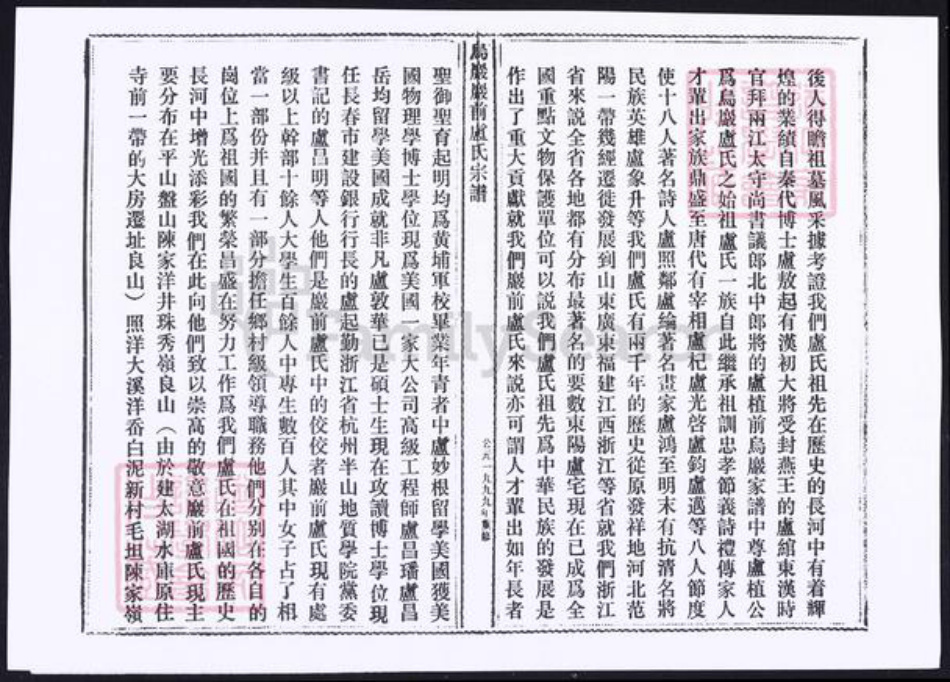 後人得瞻祖墓風采據考證我們盧氏祖先在歷史的長河中有着輝
煌的業績自秦代博士盧敖起有漢初大將受封燕王的盧綰東漢時
官拜兩江太守尚書議郎北中郎將的盧植前烏巖家譜中尊盧植公
爲烏巖盧氏之始祖盧氏一族自此繼承祖訓忠孝節義詩禮傳家人
才輩出家族鼎盛至唐代有宰相盧杞盧光啓盧鈞盧邁等八人節度
使十八人著名詩人盧照鄰盧綸著名畫家盧鴻至明末有抗清名將
民族英雄盧象升等我們盧氏有兩千年的歷史從原發祥地河北范
陽一帶幾經遷徙發展到山東廣東福建江西浙江等省就我們浙江
省來説全省各地都有分布最著名的要數東陽盧宅現在已成爲全
國重點文物保護單位可以説我們盧氏祖先爲中華民族的發展是
作出了重大貢獻就我們巖前盧氏來説亦可謂人才輩出如年長者
烏巖巖前盧氏宗譜
公元一九九九年重修
聖御聖育起明均爲黄埔軍校畢業年青者中盧妙根留學美國獲美
國物理學博士學位現爲美國一家大公司高級工程師盧昌璠盧昌
岳均留學美國成就非凡盧敦華已是碩士生現在攻讀博士學位現
任長春市建設銀行行長的盧起勤浙江省杭州半山地質學院黨委
書記的盧昌明等人他們是巖前盧氏中的佼佼者巖前盧氏現有處
級以上幹部十餘人大學生百餘人中專生數百人其中女子占了相
當一部份并且有一部分擔任鄉村級領導職務他們分别在各自的
崗位上爲祖國的繁榮昌盛在努力工作爲我們盧氏在祖國的歷史
長河中增光添彩我們在此向他們致以崇高的敬意巖前盧氏現主
要分布在平山盤山陳家洋井珠秀嶺良山（由於建太湖水庫原住
寺前一帶的大房遷址良山）照洋大溪洋岙白泥新村毛坦陳家嶺
FamilySearch